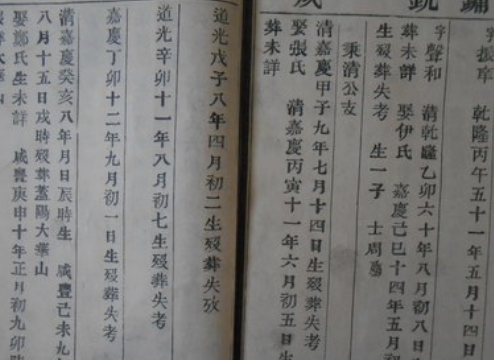 字振寧 乾隆丙午五十一年五月十四日
字聲和 清乾隆乙卯六十年八月初八日
葬未詳 娶伊氏 嘉慶己巳十四年五月
生歿葬失考 生一子 士周
秉清公支
清嘉慶甲子九年七月十四日生歿葬失考
娶張氏 清嘉慶丙寅十一年六月初五日生
葬未詳
道光戊子八年四月初二生歿葬失攷
道光辛卯十一年八月初七生歿葬失考
嘉慶丁卯十二年九月初一日生歿葬失考
清嘉慶癸亥八年月日辰時生 咸豐己未九
八月十五日戌時歿葬蓋陽大葉山
娶鄭氏生未詳 咸豐庚申十年正月初九卯時